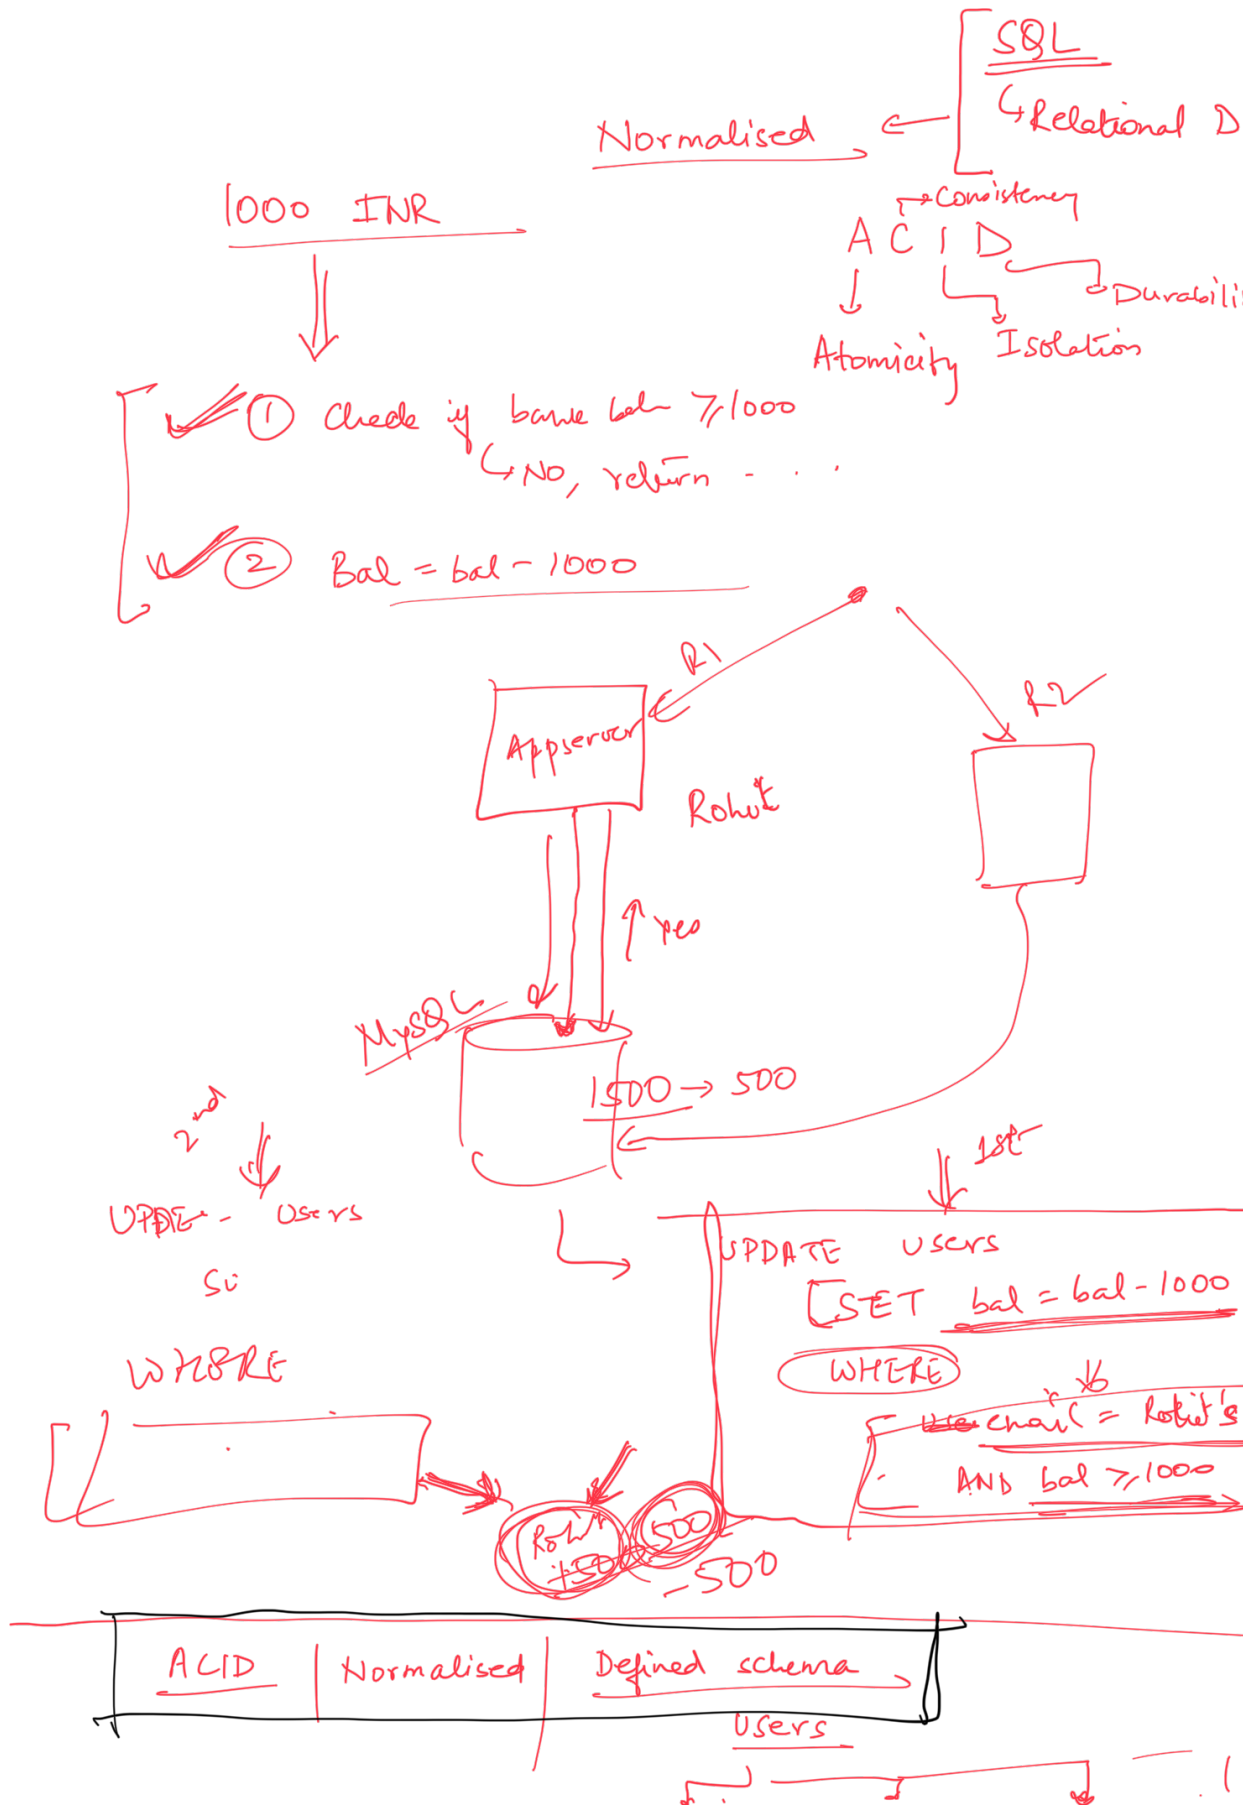 SQL
↳ Relational D
Normalised
1000 INR
Consistency
A C I D
Durabili
Atomicity
Isolation
① Check if bank bal ≥ 1000
↳ No, return - . . .
② Bal = bal - 1000
R1
R2
Appserver
Rohit
Yes
MySQL
1500 → 500
2nd
1st
UPDE - Users
UPDATE Users
SET bal = bal - 1000
WHERE
WHERE
email = Rohit's
AND bal ≥ 1000
500
-500
ACID | Normalised | Defined schema
Users